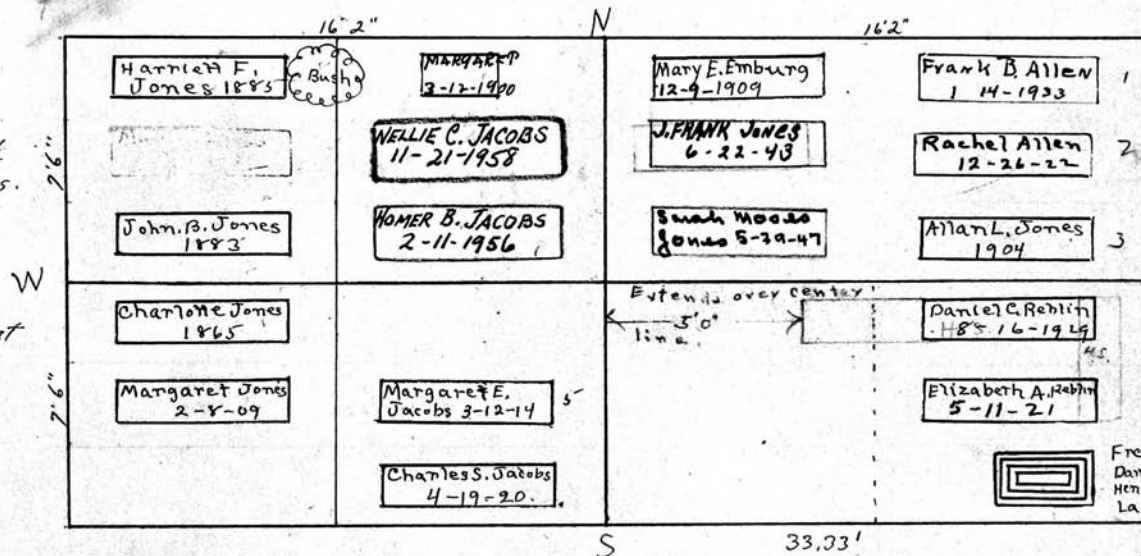 N
16'2"
16'2"
Harriett F.
Jones 1885
Bush
MARGARET
3-12-1900
Mary E. Emburg
12-9-1909
Frank B. Allen
1 14-1933
1
7'6"
NELLIE C. JACOBS
11-21-1958
J. FRANK JONES
6-22-43
Rachel Allen
12-26-22
2
s.
John. B. Jones
1883
HOMER B. JACOBS
2-11-1956
Sarah Moore
Jones 5-29-47
Allan L. Jones
1904
3
W
Charlotte Jones
1865
Extends over center
5'0"
line
Daniel C. Reblin
8. 16-1929
H.S.
7'6"
Margaret Jones
2-8-09
Margaret E.
Jacobs 3-12-14
5
Elizabeth A. Reblin
5-11-21
Charles S. Jacobs
4-19-20.
Fre
Dan
Hen
La
S
33.33'